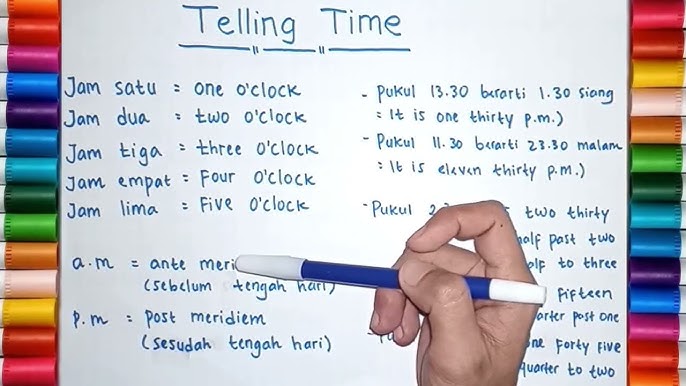 Telling Time
Jam satu = one o'clock
Jam dua = two o'clock
Jam tiga = three o'clock
Jam empat = Four o'clock
Jam lima = Five o'clock
a.m = ante
(sebelum tengah hari)
p.m = post meridiem
(sesudah tengah hari)
- Pukul 13.30 berarti 1.30 siang
= It is one thirty p.m.)
- Pukul 11.30 berarti 23.30 malam
= It is eleven thirty p.m.)
- Pukul two thirty
half past two
to three
Fifteen
past one
one forty five
quarter to two